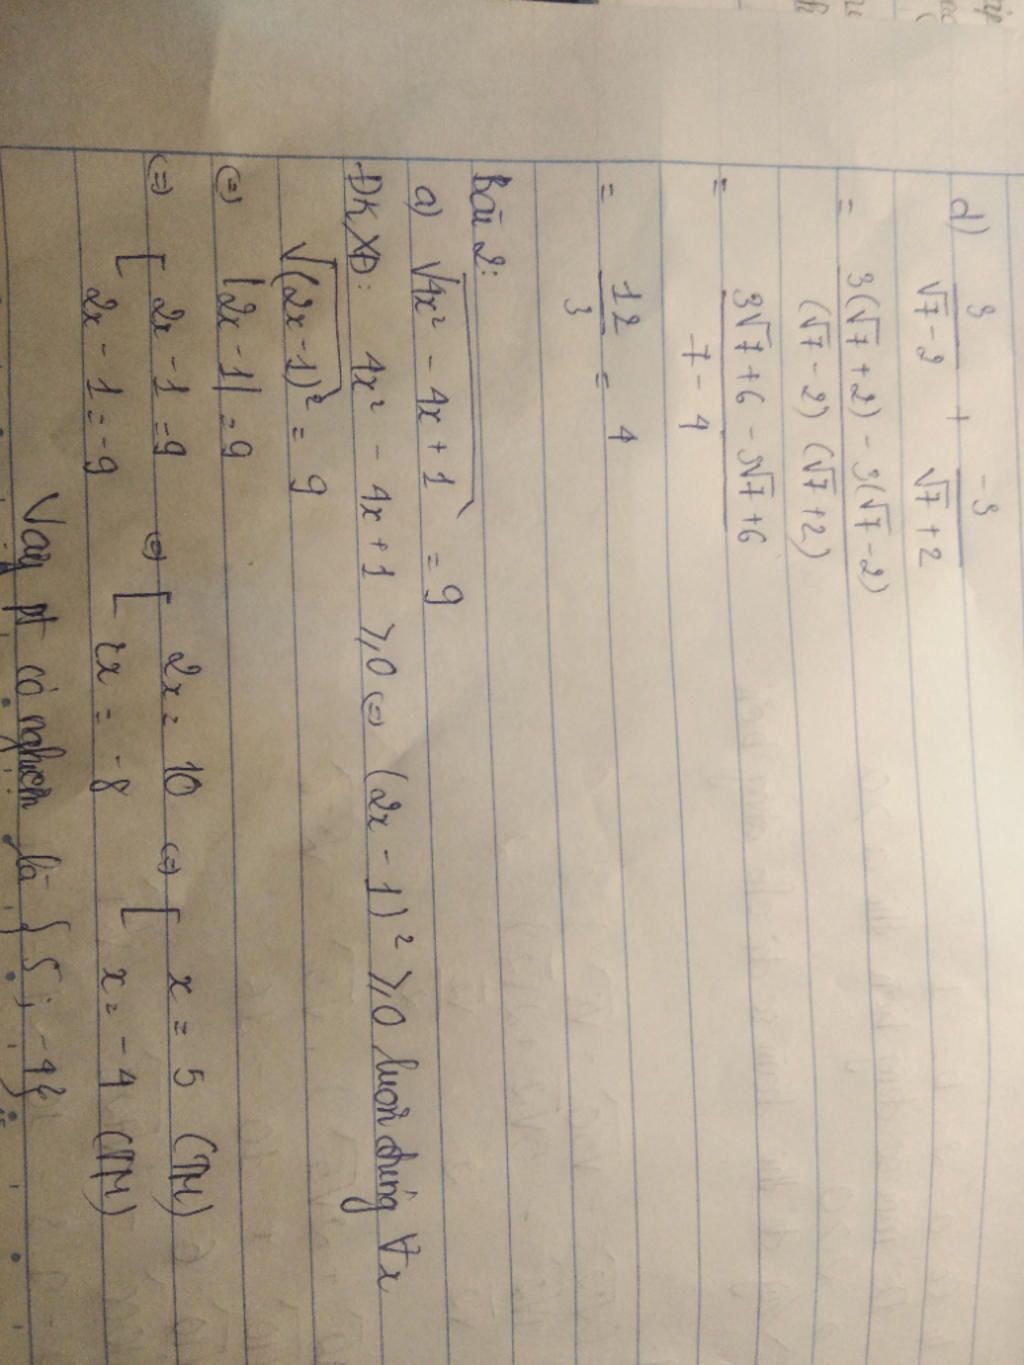 d) 3/(√7 - 2) + -3/(√7 + 2)
= (3(√7 + 2) - 3(√7 - 2))/((√7 - 2)(√7 + 2))
= (3√7 + 6 - 3√7 + 6)/(7 - 4)
= 12/3 = 4
Bài 2:
a) √(4x² - 4x + 1) = 9
ĐKXĐ: 4x² - 4x + 1 ⩾ 0 (=) (2x - 1)² ⩾ 0 luôn đúng ∀x
√((2x - 1)²) = 9
(=) |2x - 1| = 9
(=) [ 2x - 1 = 9 (=) [ 2x = 10 (=) [ x = 5 (TM)
2x - 1 = -9 2x = -8 x = -4 (TM)
Vậy pt có nghiệm là {5; -4}